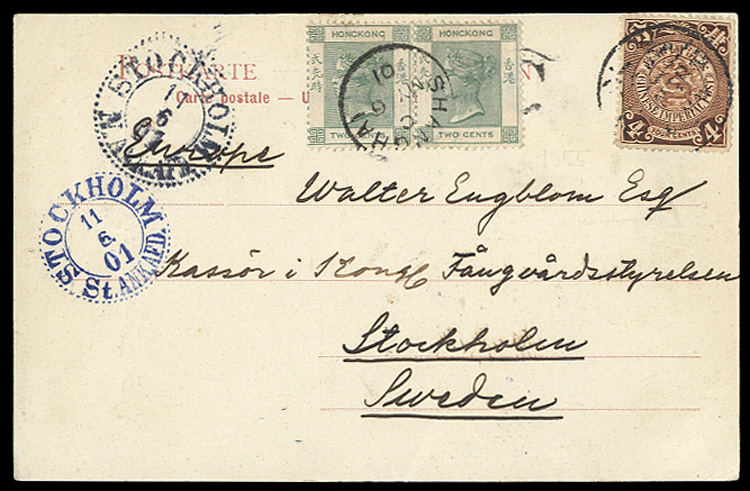 POSTKARTE
Carte postale — U
HONGKONG
HONGKONG
TWO CENTS
TWO CENTS
香港
香港
SHANGHAI
01
CHINESE IMPERIAL POST
4
4
FOUR CENTS
STOCKHOLM
11
6
01
STOCKHOLM
11
6
01
St. ANK. AFD.
Europe
Walter Engblom Esq
Kassör i Kongl Fångvårdsstyrelsen
Stockholm
Sweden